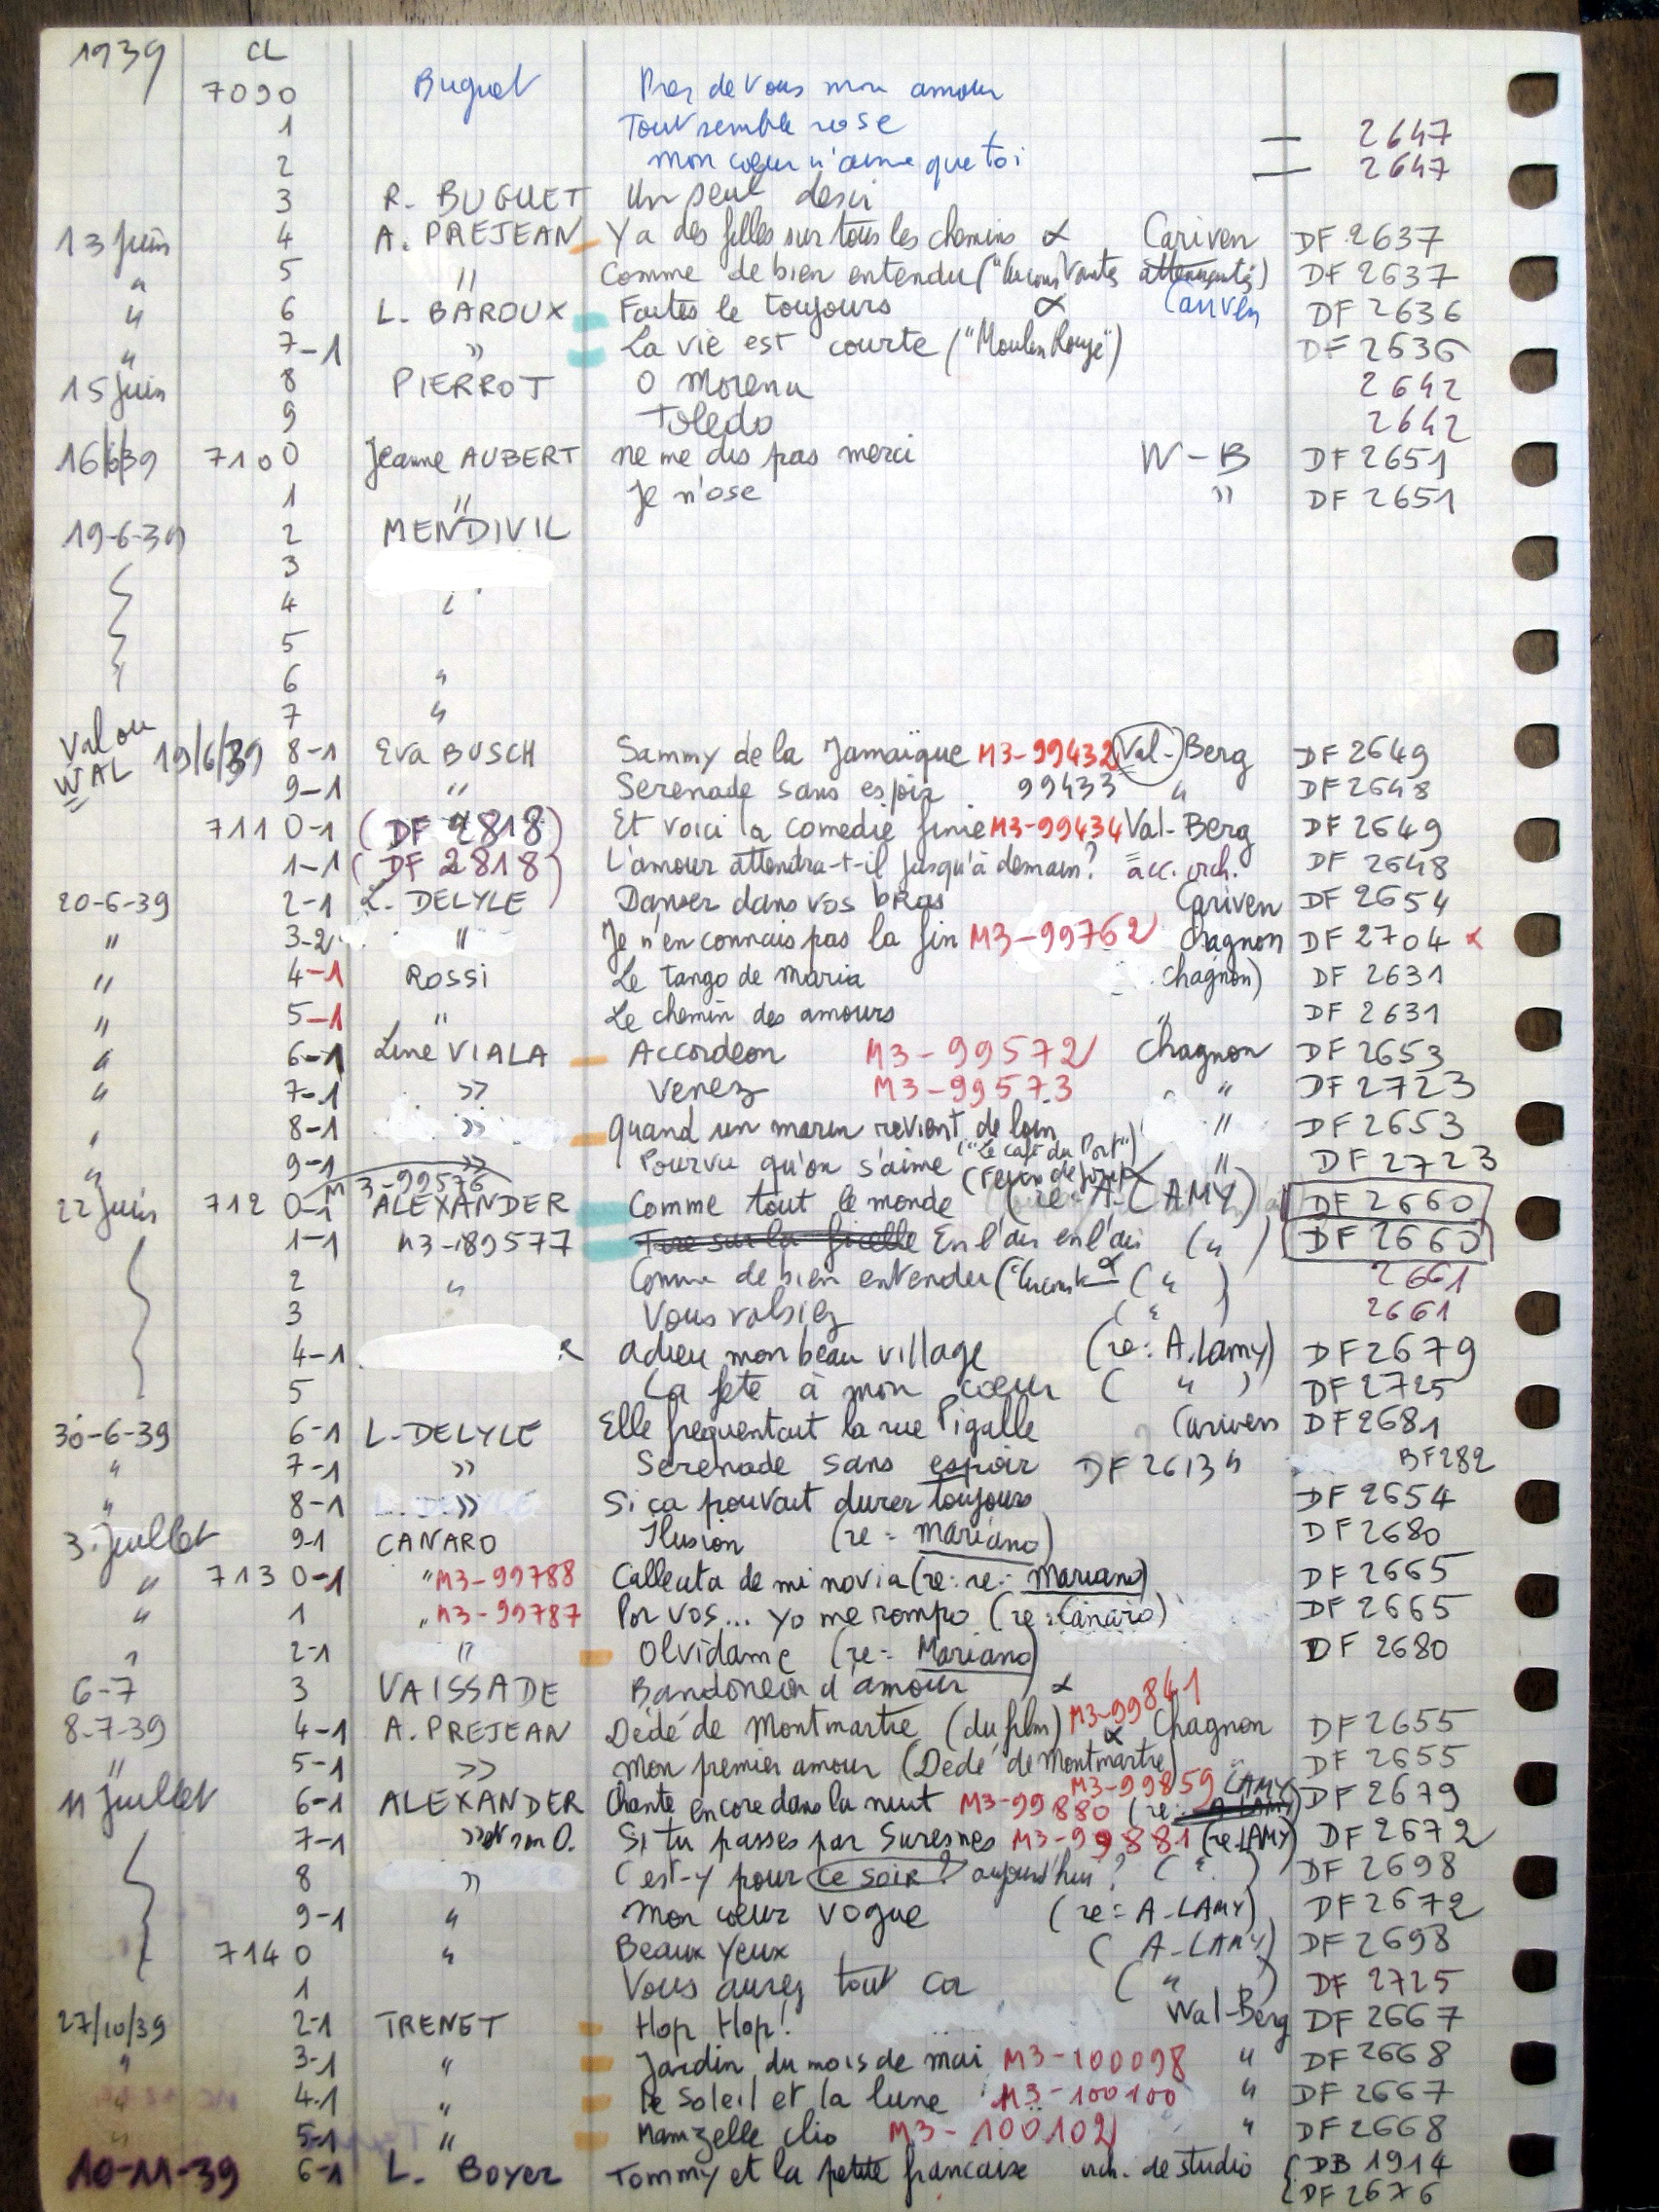 1939 CL
7090 Buguet Pres de Vous mon amour
1 Tout semble rose — 2647
2 mon coeur n'aime que toi — 2647
3 R. BUGUET Un seul desir
13 juin 4 A. PREJEAN Y a des filles sur tous les chemins α Cariven DF 2637
" 5 " Comme de bien entendu ("Circonstantes attenuantes) DF 2637
" 6 L. BAROUX Faites le toujours α Cariven DF 2636
" 7-1 " La vie est courte ("Moulin Rouge") DF 2636
15 juin 8 PIERROT O Morena 2642
9 Toledo 2642
16/6/39 7100 Jeanne AUBERT ne me dis pas merci W-B DF 2651
1 " Je n'ose " DF 2651
19-6-39 2 MENDIVIL
3
4 "
5
6 "
7 "
Val ou WAL 19/6/39 8-1 Eva BUSCH Sammy de la Jamaïque M3-99432 Val-Berg DF 2649
9-1 " Serenade sans espoir 99433 " DF 2648
7110-1 (DF 2818) Et voici la comedie finie M3-99434 Val-Berg DF 2649
1-1 (DF 2818) L'amour attendra-t-il jusqu'à demain? acc. orch. DF 2648
20-6-39 2-1 L. DELYLE Danser dans vos bras Cariven DF 2654
" 3-2 " Je n'en connais pas la fin M3-99762 Chagnon DF 2704 x
" 4-1 ROSSI Le tango de Maria chagnon) DF 2631
" 5-1 " Le chemin des amours " DF 2631
" 6-1 Line VIALA Accordeon M3-99572 Chagnon DF 2653
" 7-1 " Venez M3-99573 " DF 2723
" 8-1 " Quand un marin revient de loin " DF 2653
" 9-1 " Pourvu qu'on s'aime ("Le café du Port") " DF 2723
M3-99576
22 juin 7120-1 ALEXANDER Comme tout le monde (re: A-LAMY) DF 2660
1-1 M3-189577 Tire sur la ficelle En l'air en l'air (") DF 2660
2 " Comme de bien entendu ("Circonst α (") 2661
3 Vous valsiez (") 2661
4-1 R adieu mon beau village (re: A. Lamy) DF 2679
5 La fete à mon coeur (") DF 2725
30-6-39 6-1 L-DELYLE Elle frequentait la rue Pigalle Cariven DF 2681
" 7-1 " Serenade sans espoir DF 2613 " BF282
" 8-1 " Si ça pouvait durer toujours DF 2654
3. juillet 9-1 CANARO Ilusion (re = mariano) DF 2680
" 7130-1 "M3-99788 Callecita de mi novia (re: re- Mariano) DF 2665
" 1 "M3-99787 Por vos... yo me rompo (re: Canaro) DF 2665
" 2-1 " Olvidame (re= Mariano) DF 2680
6-7 3 VAISSADE Bandoneon d'amour α
8-7-39 4-1 A. PREJEAN Dédé de Montmartre (du film) M3-99841 α Chagnon DF 2655
" 5-1 " Mon premier amour (Dedé de Montmartre) " DF 2655
M3-99859 LAMY
11 juillet 6-1 ALEXANDER Chante encore dans la nuit M3-99880 (re: A-LAMY) DF 2679
7-1 " et son O. Si tu passes par Suresnes M3-99881 (re LAMY) DF 2672
8 " C'est-y pour ce soir? aujourd'hui? (") DF 2698
9-1 " Mon coeur vogue (re= A-LAMY) DF 2672
7140 " Beaux Yeux (A-LAMY) DF 2698
1 Vous aurez tout ca (") DF 2725
27/10/39 2-1 TRENET Hop Hop! Wal-Berg DF 2667
" 3-1 " Jardin du mois de mai M3-100098 " DF 2668
" 4-1 " le Soleil et la lune M3-100100 " DF 2667
" 5-1 " Mamzelle clio M3-100102 " DF 2668
10-11-39 6-1 L. Boyer Tommy et la petite francaise orch. de studio {DB 1914
{DF 2676